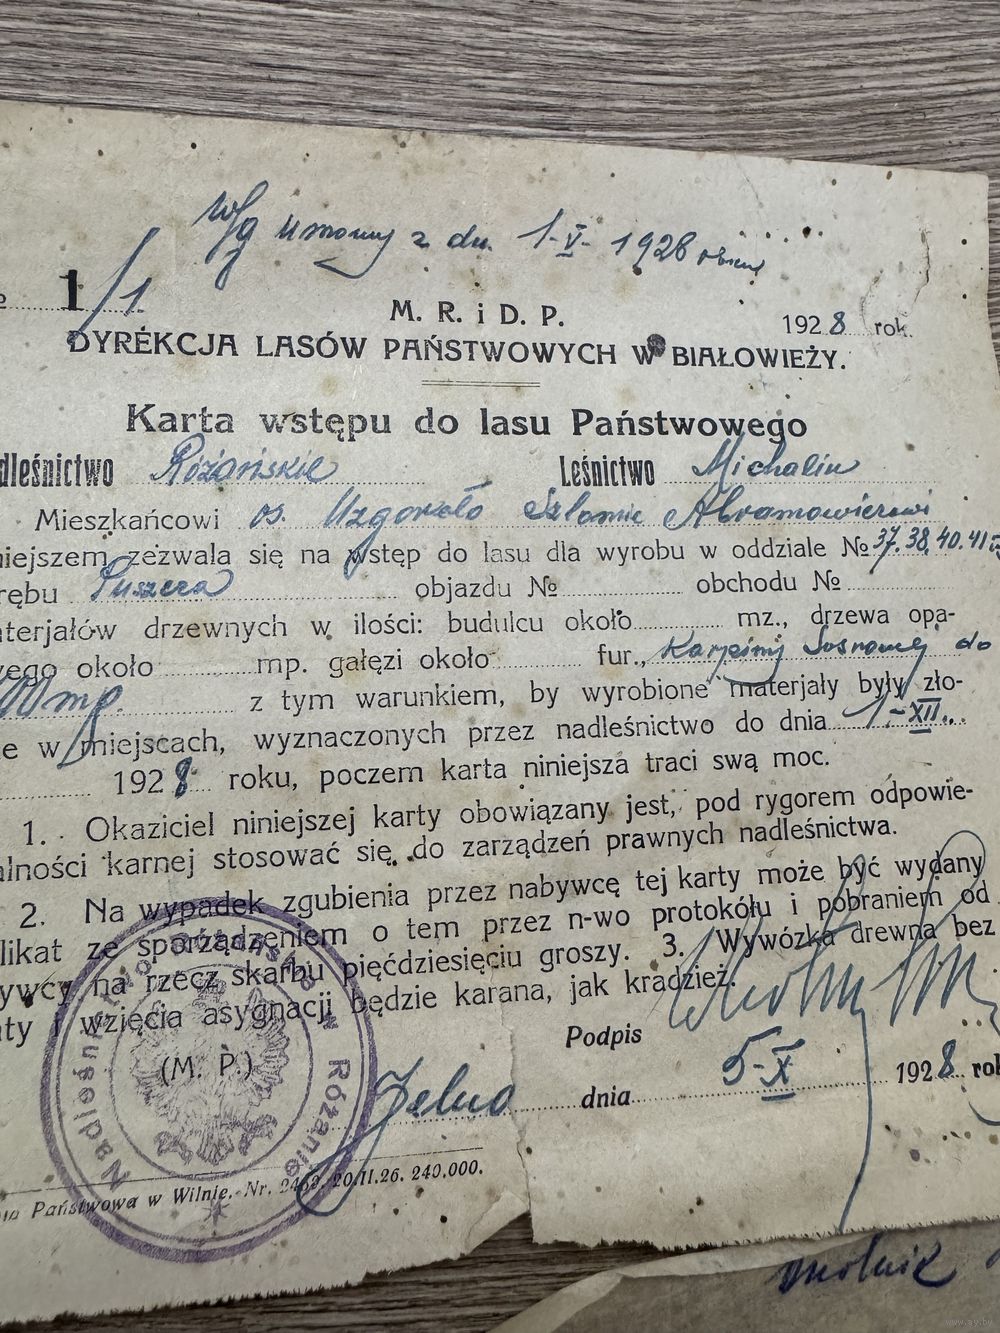 Wg umowy z dn. 1-V-1928 roku
1/1
M. R. i D. P.
1928 rok.
DYREKCJA LASÓW PAŃSTWOWYCH W BIAŁOWIEŻY.
Karta wstępu do lasu Państwowego
dleśnictwo Różańskie Leśnictwo Michalin
Mieszkańcowi os. Abramowiczowi
niejszem zezwala się na wstęp do lasu dla wyrobu w oddziale № 37.38.40.41
rębu Puszcza objazdu № obchodu №
terjałów drzewnych w ilości: budulcu około mz., drzewa opa-
wego około mp. gałęzi około fur., Karpiny Sosnowej do
00 mp. z tym warunkiem, by wyrobione materjały były zło-
e w miejscach, wyznaczonych przez nadleśnictwo do dnia 1-XII
1928 roku, poczem karta niniejsza traci swą moc.
1. Okaziciel niniejszej karty obowiązany jest, pod rygorem odpowie-
alności karnej stosować się do zarządzeń prawnych nadleśnictwa.
2. Na wypadek zgubienia przez nabywcę tej karty może być wydany
likat ze sporządzeniem o tem przez n-wo protokółu i pobraniem od
ywcy na rzecz skarbu pięćdziesięciu groszy. 3. Wywózka drewna bez
aty i wzięcia asygnacji będzie karana, jak kradzież.
Podpis
(M. P.)
Nadleśnictwo Różańskie w Różanie
dnia 5-X 1928 rok
Państwowa w Wilnie. Nr. 2463. 20.II.26. 240.000.
www.ay.by